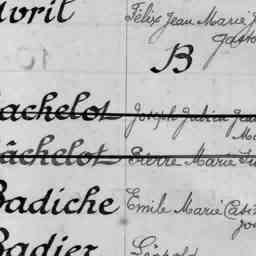 Avril Félix Jean Marie J
Gasto
B
Bachelot Joseph Julien Jea
Ma
Bâchelot Pierre Marie
Badiche Emile Marie Casi
Jo
Badier Léopold